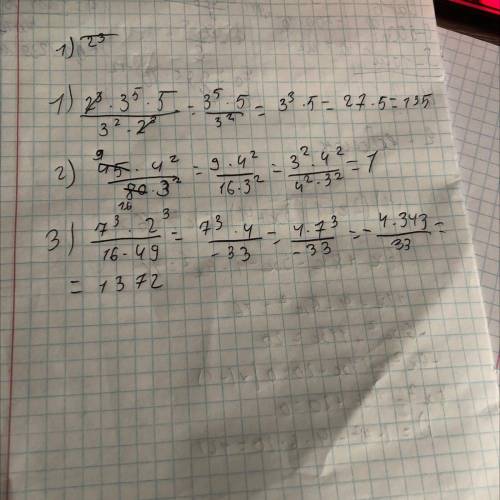 1) 2³
1) (2³ · 3⁵ · 5)/(3² · 2³) = (3⁵ · 5)/3² = 3³ · 5 = 27 · 5 = 135
2) (45 9 · 4²)/(80 16 · 3²) = (9 · 4²)/(16 · 3²) = (3² · 4²)/(4² · 3²) = 1
3) (7³ · 2³)/(16 - 49) = (7³ · 4)/(-33) = (4 · 7³)/(-33) = -(4 · 343)/33 =
= 1372